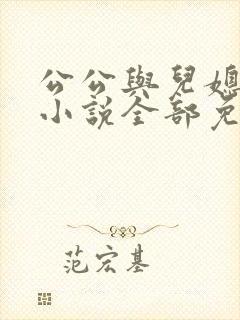 公公與兒媳
小說全部免
范宏基